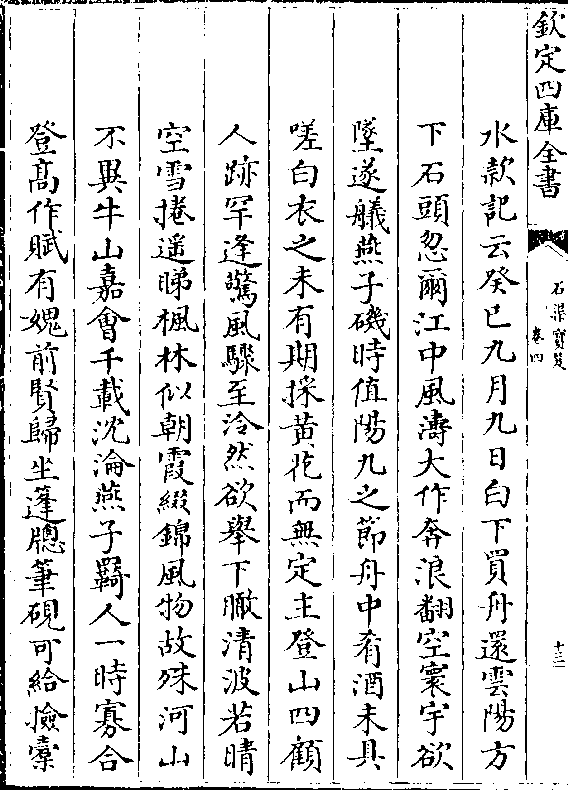 欽定四庫全書
石渠寶笈
卷四
十三
水款記云癸巳九月九日白下買舟還雲陽方
下石頭忽爾江中風濤大作奔浪翻空寰宇欲
墜遂艤燕子磯時值陽九之節舟中肴酒未具
嗟白衣之未有期採黄花而無定主登山四顧
人跡罕逢驚風驟至泠然欲舉下瞰清波若晴
空雪捲遥睇楓林似朝霞綴錦風物故殊河山
不異牛山嘉會千載沈淪燕子羇人一時寡合
登髙作賦有媿前賢歸坐蓬牕筆硯可給撿橐